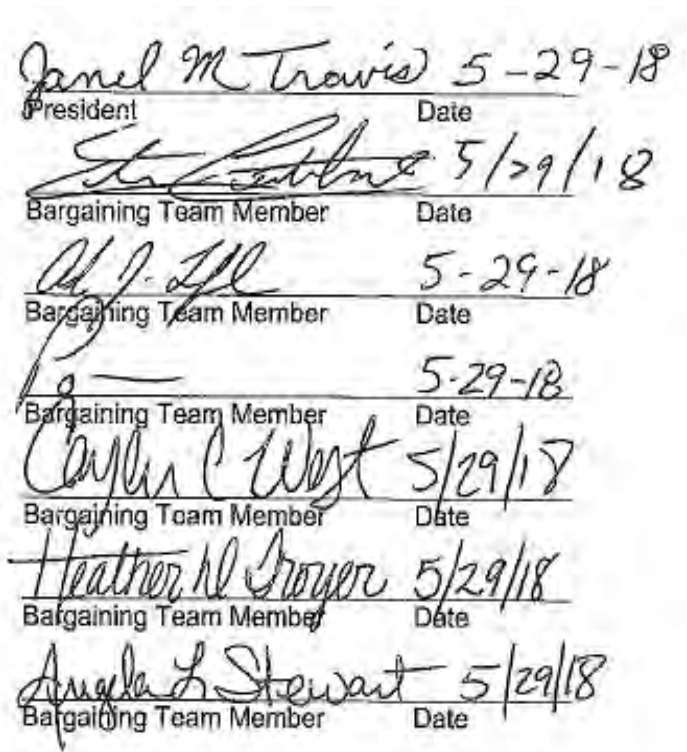 Janel M Travis 5-29-18
President Date
5/29/18
Bargaining Team Member Date
5-29-18
Bargaining Team Member Date
5-29-18
Bargaining Team Member Date
C West 5/29/18
Bargaining Team Member Date
Heather D Troyer 5/29/18
Bargaining Team Member Date
Angela L Stewart 5/29/18
Bargaining Team Member Date